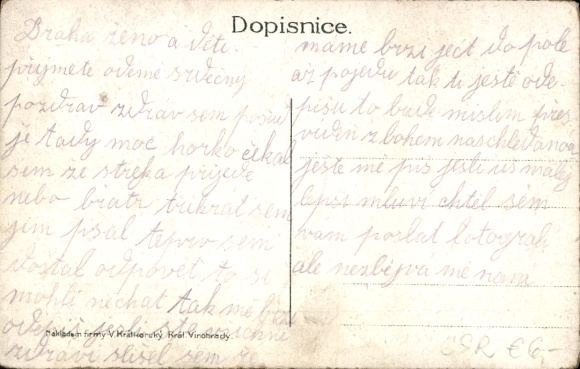 Dopisnice.
Draha ženo a děte
přijmete odeme srdečny
pozdrav zdráv sem posud
je tady moc horko čekal
sem že streka prijede
nebo bratr trikrat sem
jim psal teprv sem
dostal odpověť to se
mohli nechat tak mě brzi
zdravi slišel sem že
mame brzi ject do pole
až pojedu tak ti ještě ode-
pisu to bude mislim přes
viden z bohem naschledanou
ještě mě piš jestli už malej
lepsi mluvi chtěl sem
vam poslat fotograf
ale nezbejva mě
Nákladem firmy V. Krátkoruký, Král. Vinohrady.
ČSR € 6,-